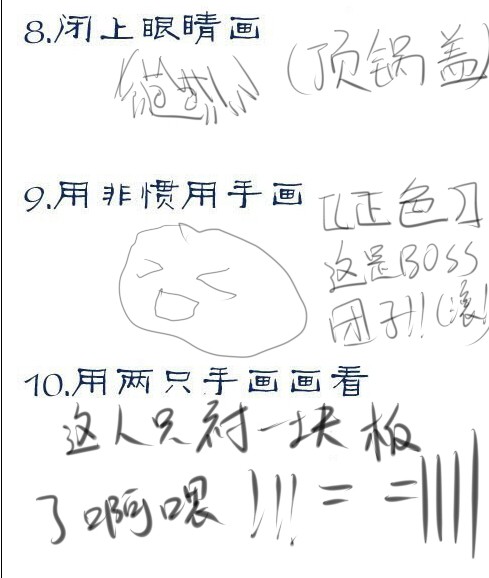 8.闭上眼睛画
(顶锅盖)
9.用非惯用手画
【正色】
这是BOSS
团子!!(滚!
10.用两只手画画看
这人只有一块板
了啊喂!!!= =||||